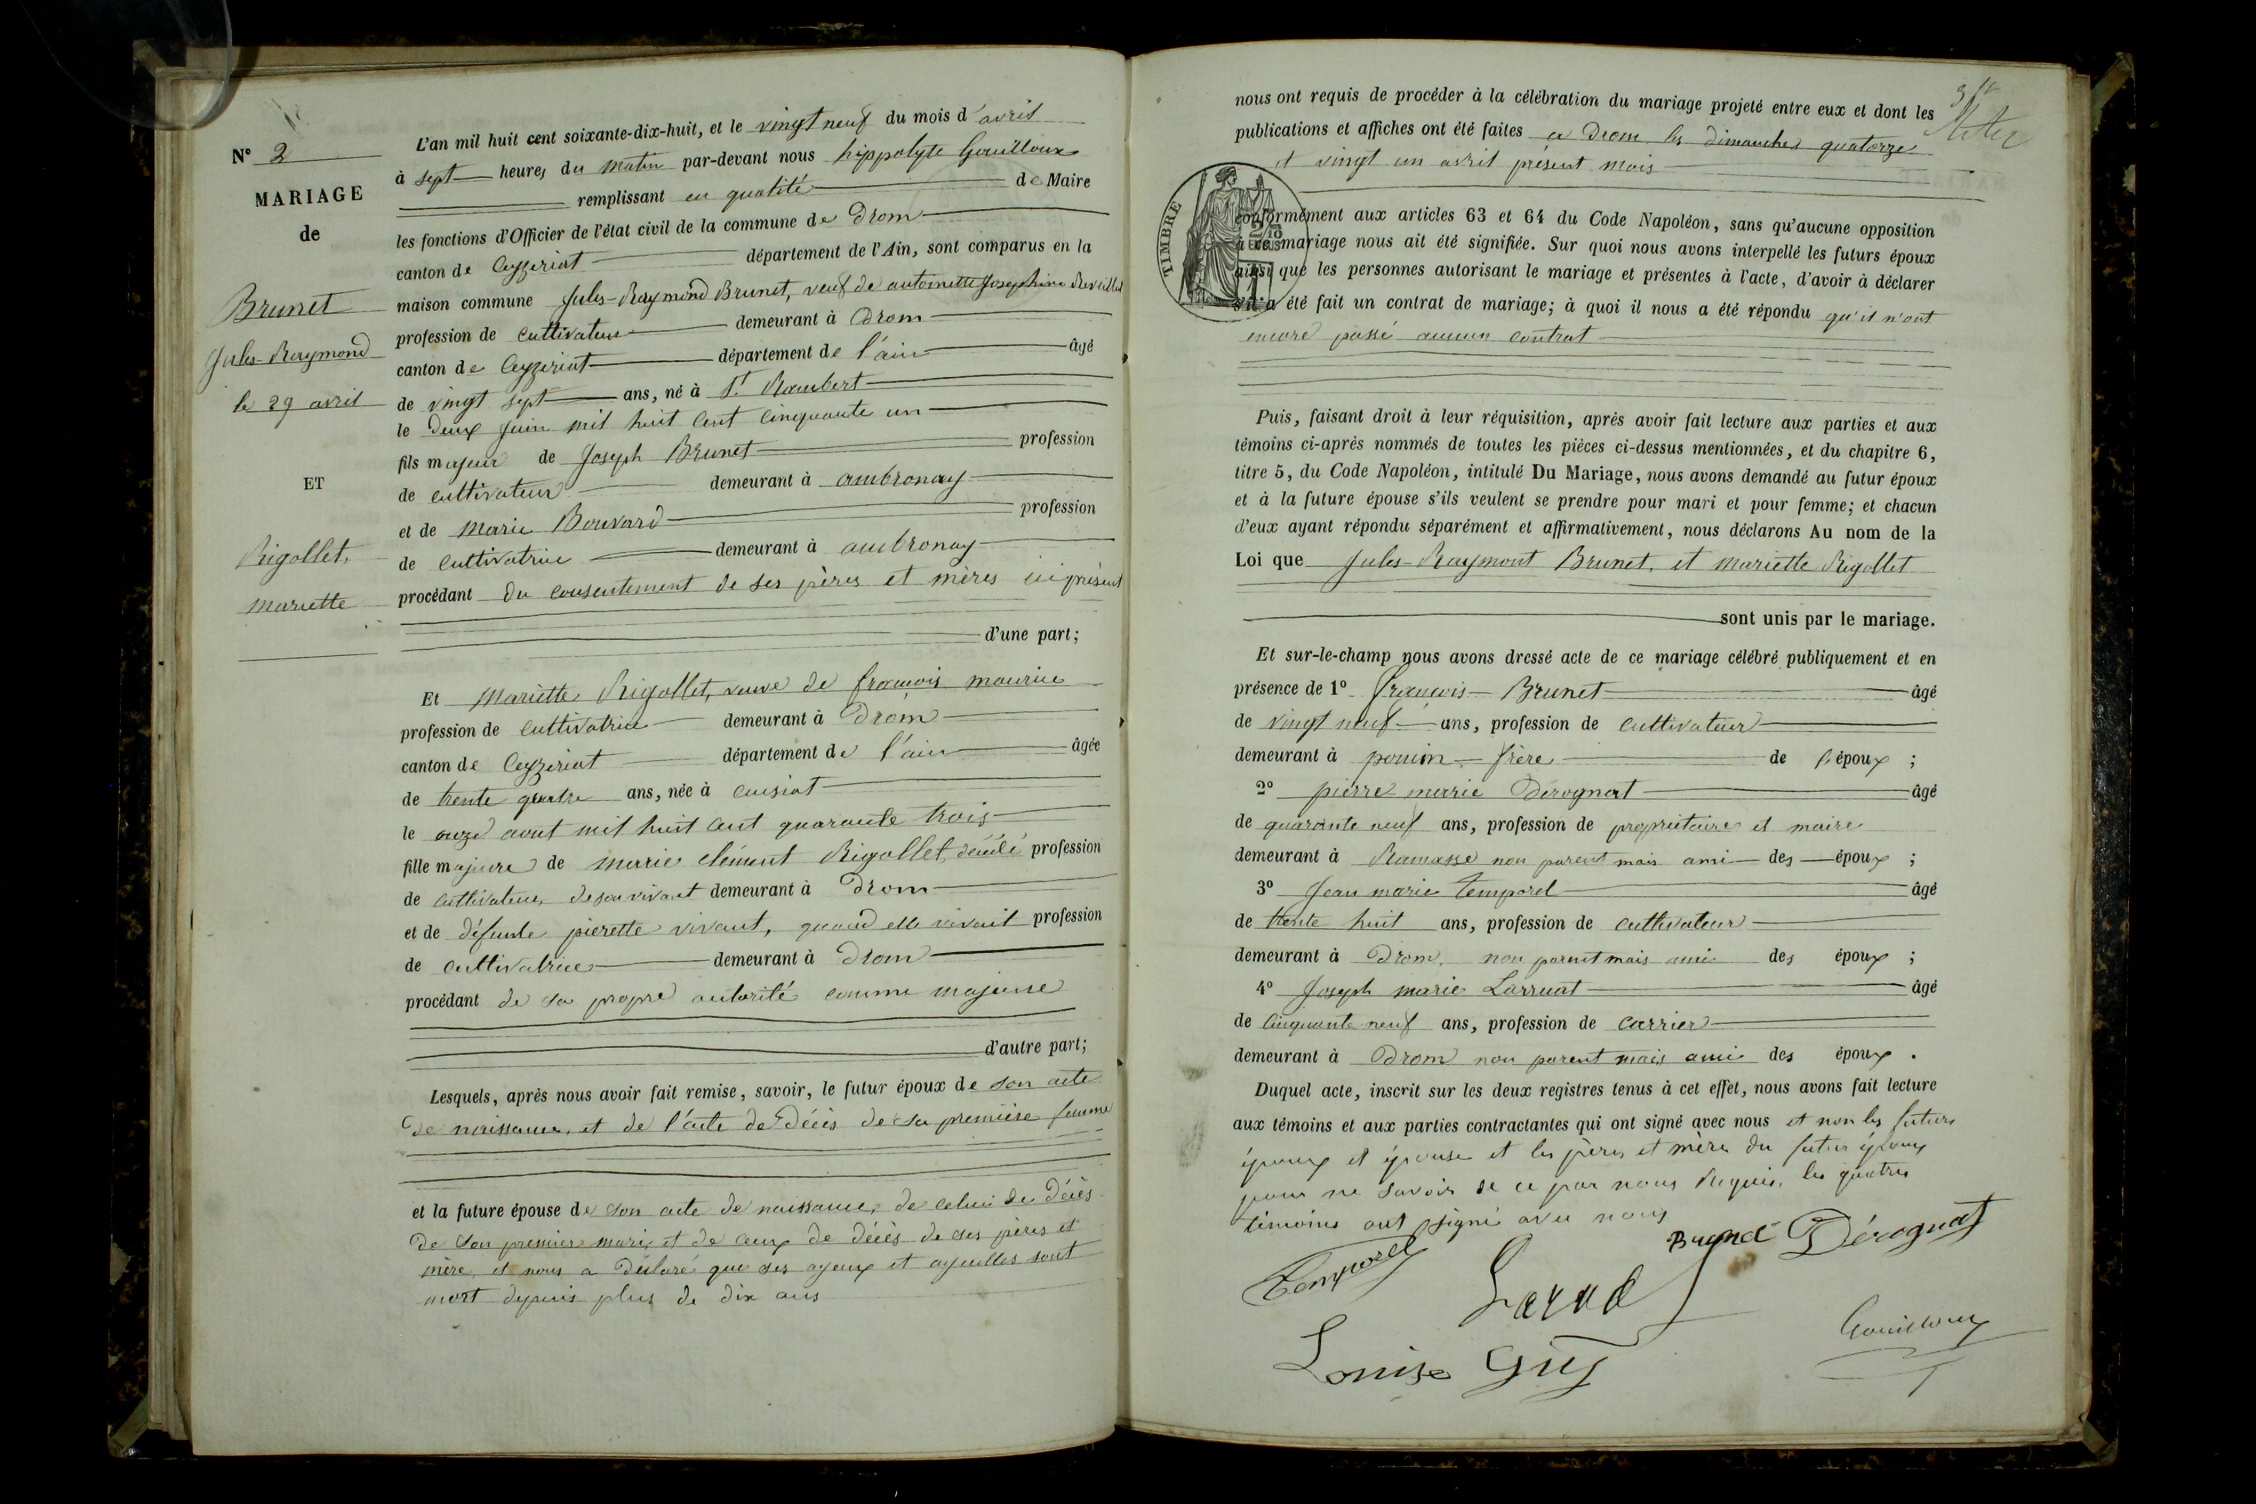 N° 2
MARIAGE
de
Brunet
Jules-Raymond
le 29 avril
ET
Rigollet,
mariette
L'an mil huit cent soixante-dix-huit, et le vingt neuf du mois d'avril
à sept heures du matin par-devant nous hippolyte Gouilloux
remplissant en qualité de Maire
les fonctions d'Officier de l'état civil de la commune de Drom
canton de Ceyzeriat département de l'Ain, sont comparus en la
maison commune Jules-Raymond Brunet, veuf de antoinette Josephine
profession de cultivateur demeurant à Drom
canton de Ceyzeriat département de l'ain âgé
de vingt sept ans, né à St Rambert
le deux Juin mil huit cent cinquante un
fils majeur de Joseph Brunet profession
de cultivateur demeurant à ambronay
et de Marie Bouvard profession
de cultivatrice demeurant à ambronay
procédant du consentement de ses pères et mères ici présent
d'une part;
Et Mariette Rigollet, veuve de francois maurice
profession de cultivatrice demeurant à Drom
canton de Ceyzeriat département de l'ain âgée
de trente quatre ans, née à cuisiat
le onze aout mil huit cent quarante trois
fille majeure de marie clément Rigollet, décédé profession
de cultivateur, de son vivant demeurant à Drom
et de défunte pierette vivant, quand elle vivait profession
de cultivatrice demeurant à Drom
procédant de sa propre autorité comme majeure
d'autre part;
Lesquels, après nous avoir fait remise, savoir, le futur époux de son acte
de naissance, et de l'acte de décès de sa première femme
et la future épouse de son acte de naissance, de celui de décès
de son premier mari, et de ceux de décès de ses pères et
mère, et nous a déclaré que ses ayeux et ayeulles sont
mort depuis plus de dix ans
nous ont requis de procéder à la célébration du mariage projeté entre eux et dont les
publications et affiches ont été faites a Drom les dimanches quatorze
et vingt un avril présent mois
TIMBRE
conformément aux articles 63 et 64 du Code Napoléon, sans qu'aucune opposition
à ce mariage nous ait été signifiée. Sur quoi nous avons interpellé les futurs époux
ainsi que les personnes autorisant le mariage et présentes à l'acte, d'avoir à déclarer
s'il a été fait un contrat de mariage; à quoi il nous a été répondu qu'il n'ont
encore passé aucun contrat
Puis, faisant droit à leur réquisition, après avoir fait lecture aux parties et aux
témoins ci-après nommés de toutes les pièces ci-dessus mentionnées, et du chapitre 6,
titre 5, du Code Napoléon, intitulé Du Mariage, nous avons demandé au futur époux
et à la future épouse s'ils veulent se prendre pour mari et pour femme; et chacun
d'eux ayant répondu séparément et affirmativement, nous déclarons Au nom de la
Loi que Jules-Raymont Brunet, et mariette Rigollet
sont unis par le mariage.
Et sur-le-champ nous avons dressé acte de ce mariage célébré publiquement et en
présence de 1° francois Brunet âgé
de vingt neuf ans, profession de cultivateur
demeurant à poncin frère de l'époux ;
2° pierre marie Dérognat âgé
de quarante neuf ans, profession de propriétaire et maire
demeurant à Ramasse non parent mais ami des époux ;
3° Jean marie temporel âgé
de trente huit ans, profession de cultivateur
demeurant à Drom, non parent mais ami des époux ;
4° Joseph marie Larruat âgé
de cinquante neuf ans, profession de carrier
demeurant à Drom non parent mais ami des époux .
Duquel acte, inscrit sur les deux registres tenus à cet effet, nous avons fait lecture
aux témoins et aux parties contractantes qui ont signé avec nous et non les futurs
époux et épouse et les pères et mère du futur époux
pour ne savoir de ce par nous Requis, les quatres
témoins ont signé avec nous
Brunet Dérognat
Temporel
Larua
Gouilloux
Louise Guy